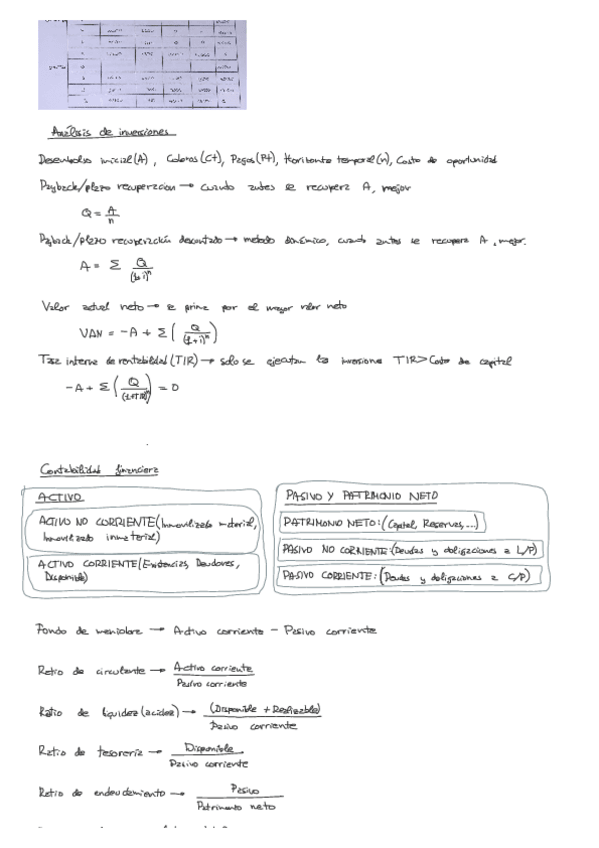 Análisis de inversiones
Desembolso inicial (A), Cobros (Ct), Pagos (Pt), Horizonte temporal (n), Costo de oportunidad
Payback/plazo recuperación → cuando antes se recupera A, mejor
Q = A/n
Payback/plazo recuperación descontado → metodo dinámico, cuando antes se recupera A, mejor.
A = Σ Q/(1+i)ⁿ
Valor actual neto → se prima por el mayor valor neto
VAN = -A + Σ (Q/(1+i)ⁿ)
Tasa interna de rentabilidad (TIR) → solo se ejecutan las inversiones TIR > Costo de capital
-A + Σ (Q/(1+TIR)ⁿ) = 0
Contabilidad financiera
ACTIVO
ACTIVO NO CORRIENTE (Inmovilizado material,
Inmovilizado inmaterial)
ACTIVO CORRIENTE (Existencias, Deudores,
Disponible)
PASIVO Y PATRIMONIO NETO
PATRIMONIO NETO: (Capital, Reservas, ...)
PASIVO NO CORRIENTE: (Deudas y obligaciones a L/P)
PASIVO CORRIENTE: (Deudas y obligaciones a C/P)
Fondo de maniobra → Activo corriente - Pasivo corriente
Ratio de circulante → Activo corriente
Pasivo corriente
Ratio de liquidez (acidez) → (Disponible + Realizable)
Pasivo corriente
Ratio de tesoreria → Disponible
Pasivo corriente
Ratio de endeudamiento → Pasivo
Patrimonio neto